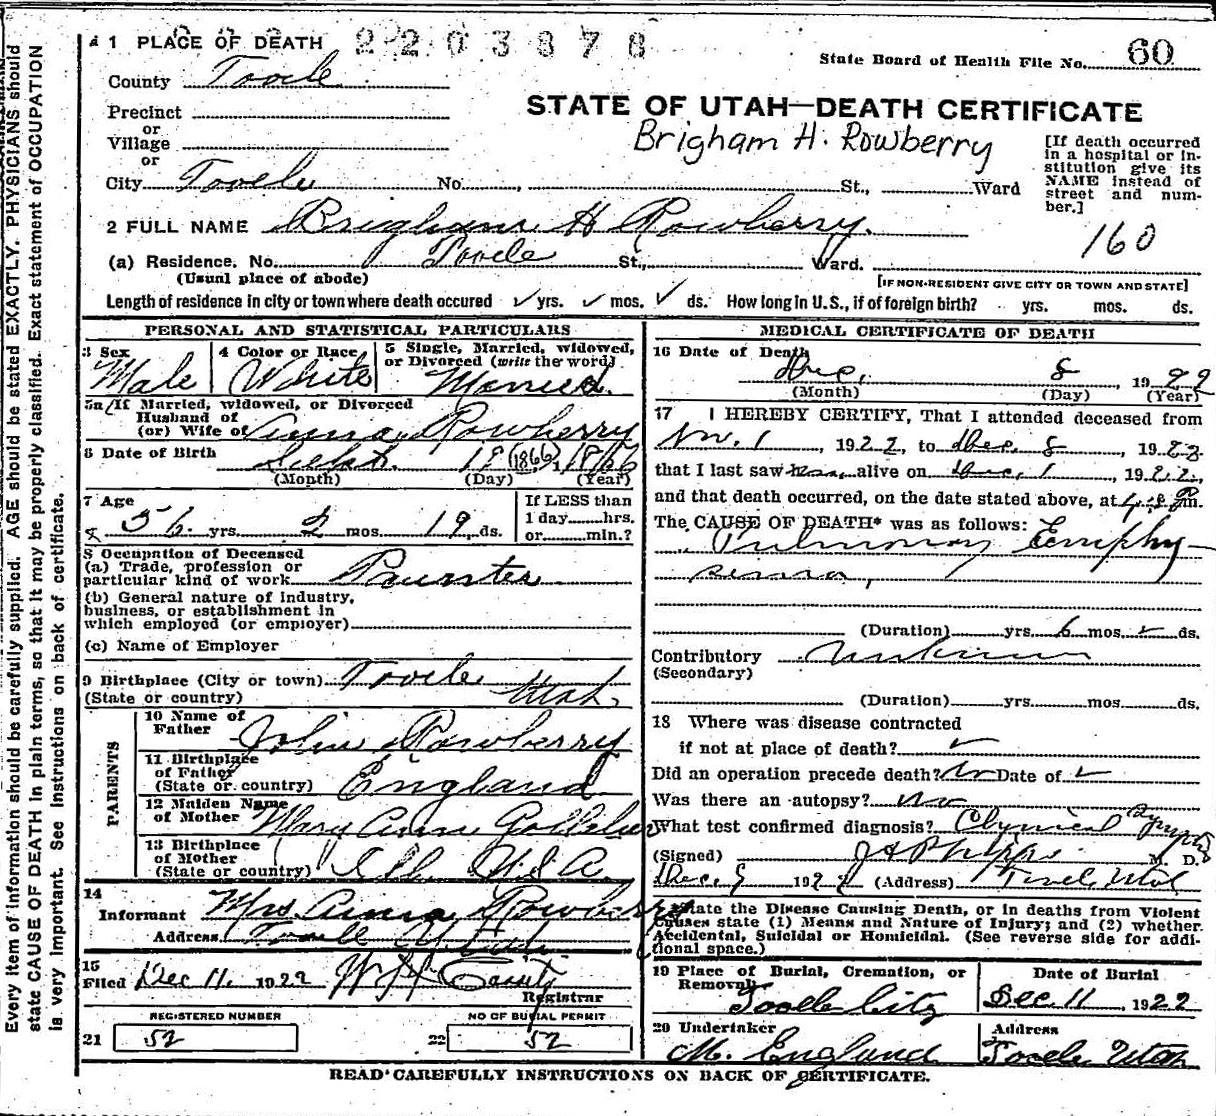 1 PLACE OF DEATH 2203878
State Board of Health File No. 60
County Tooele
STATE OF UTAH—DEATH CERTIFICATE
Precinct
or
Village
or
Brigham H. Rowberry
[If death occurred in a hospital or institution give its NAME instead of street and number.]
City Tooele No. , St., Ward
2 FULL NAME Brigham H Rowberry.
160
(a) Residence. No. Tooele St., Ward.
(Usual place of abode)
[IF NON-RESIDENT GIVE CITY OR TOWN AND STATE]
Length of residence in city or town where death occured ✓ yrs. ✓ mos. ✓ ds. How long in U. S., if of foreign birth? yrs. mos. ds.
PERSONAL AND STATISTICAL PARTICULARS
3 Sex
Male
4 Color or Race
White
5 Single, Married, widowed,
or Divorced (write the word)
Married.
5a If Married, widowed, or Divorced
Husband of
(or) Wife of Anna Rowberry
6 Date of Birth Sept. 19 (1866) 1866
(Month) (Day) (Year)
7 Age
56 yrs. 2 mos. 19 ds.
If LESS than
1 day hrs.
or min.?
8 Occupation of Deceased
(a) Trade, profession or
particular kind of work
(b) General nature of industry,
business, or establishment in
which employed (or employer)
(c) Name of Employer
9 Birthplace (City or town) Tooele
(State or country) Utah
PARENTS
10 Name of
Father John Rowberry
11 Birthplace
of Father
(State or country) England
12 Maiden Name
of Mother Mary Ann
13 Birthplace
of Mother
(State or country) Ill. U.S.A.
14
Informant Mrs. Anna Rowberry
Address Tooele Utah
15
Filed Dec 11. 1922
Registrar
REGISTERED NUMBER
21 52
NO OF BURIAL PERMIT
22 52
MEDICAL CERTIFICATE OF DEATH
16 Date of Death
Dec. 8, 1922
(Month) (Day) (Year)
17 I HEREBY CERTIFY, That I attended deceased from
Nov. 1 1922, to Dec. 8 1922
that I last saw him alive on Dec. 1 1922.
and that death occurred, on the date stated above, at m.
The CAUSE OF DEATH* was as follows:
Pulmonary Emphy-
sema,
(Duration) yrs. 6 mos. ✓ ds.
Contributory Unknown
(Secondary)
(Duration) yrs. mos. ds.
18 Where was disease contracted
if not at place of death? ✓
Did an operation precede death? No Date of ✓
Was there an autopsy? No
What test confirmed diagnosis? Clynical Sympt
(Signed) J A Phipps M. D.
Dec. 9 1922 (Address) Tooele Utah
*State the Disease Causing Death, or in deaths from Violent
Causes state (1) Means and Nature of Injury; and (2) whether
Accidental, Suicidal or Homicidal. (See reverse side for addi-
tional space.)
19 Place of Burial, Cremation, or
Removal
Tooele City
Date of Burial
Dec. 11 1922
20 Undertaker
M. England
Address
Tooele Utah
READ CAREFULLY INSTRUCTIONS ON BACK OF CERTIFICATE.
Every item of information should be carefully supplied. AGE should be stated EXACTLY. PHYSICIANS should
state CAUSE OF DEATH in plain terms, so that it may be properly classified. Exact statement of OCCUPATION
is very important. See Instructions on back of certificate.